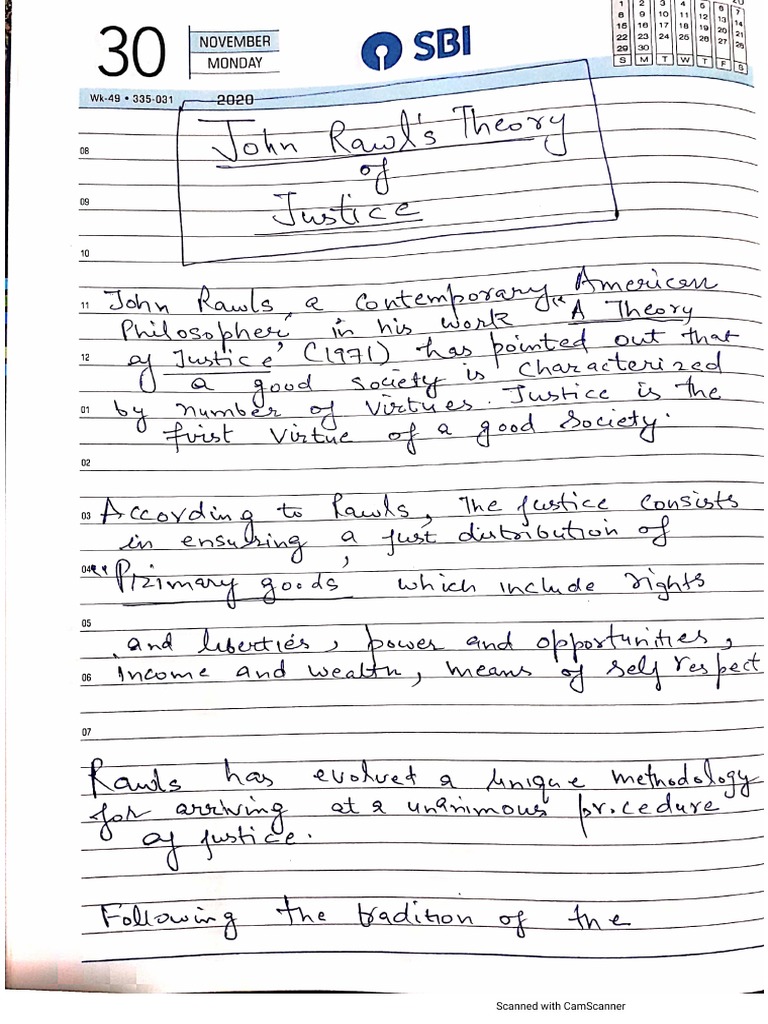 30
NOVEMBER
MONDAY
SBI
1 2 3 4 5 6 7
8 9 10 11 12 13 14
15 16 17 18 19 20 21
22 23 24 25 26 27 28
29 30
S M T W T F S
Wk-49 • 335-031
2020
John Rawl's Theory
08
of
09
Justice
10
11 John Rawls, a contemporary American
Philosopher, in his work "A Theory
12 of Justice" (1971) has pointed out that
a good society is characterized
01 by number of virtues. Justice is the
first virtue of a good society.
02
03 According to Rawls, The justice consists
in ensuring a just distribution of
04 "Primary goods" which include rights
05
and liberties, power and opportunities,
06 Income and wealth, means of self respect
07
Rawls has evolved a unique methodology
for arriving at a unanimous procedure
of justice.
Following the tradition of the
Scanned with CamScanner